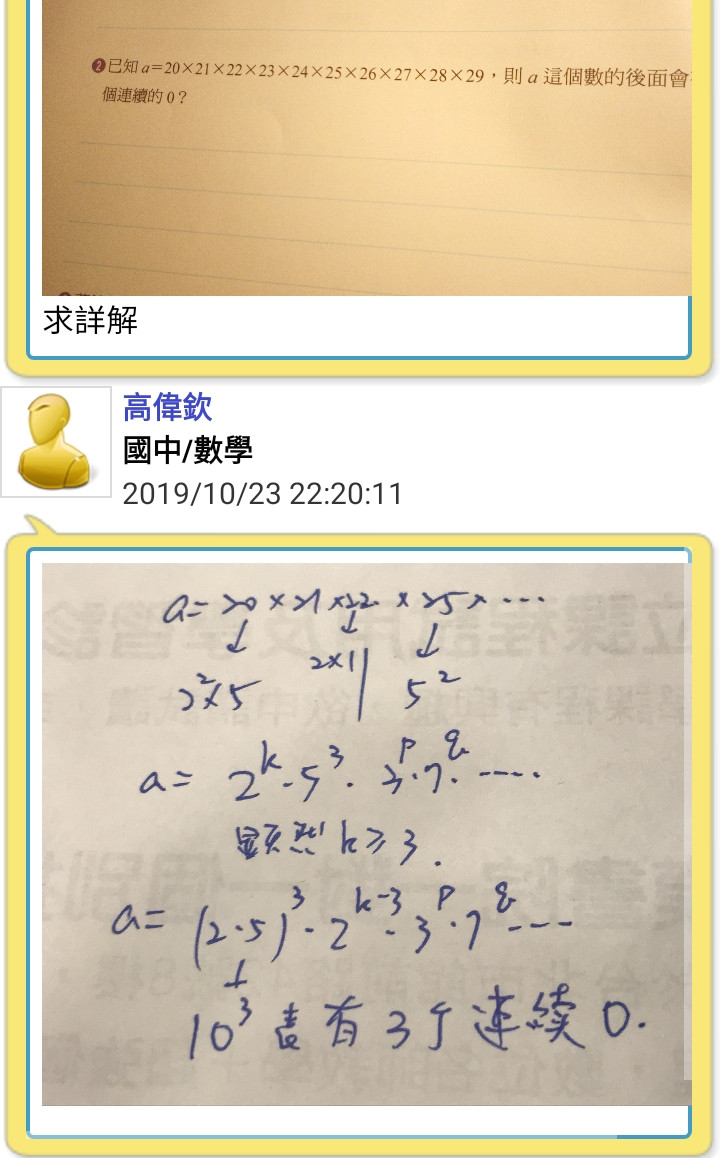 ❷已知 a=20×21×22×23×24×25×26×27×28×29，則 a 這個數的後面會
個連續的 0？
求詳解
高偉欽
國中/數學
2019/10/23 22:20:11
a= 20 × 21 × 22 × 25 × ⋯
↓ ↓ ↓
2²×5 2×11 5²
a= 2^k · 5³ · 3^p · 7^q · ⋯
顯然 k ≥ 3 .
a= (2·5)³ · 2^(k-3) · 3^p · 7^q ⋯
↓
10³ 有 3个 連續 0.